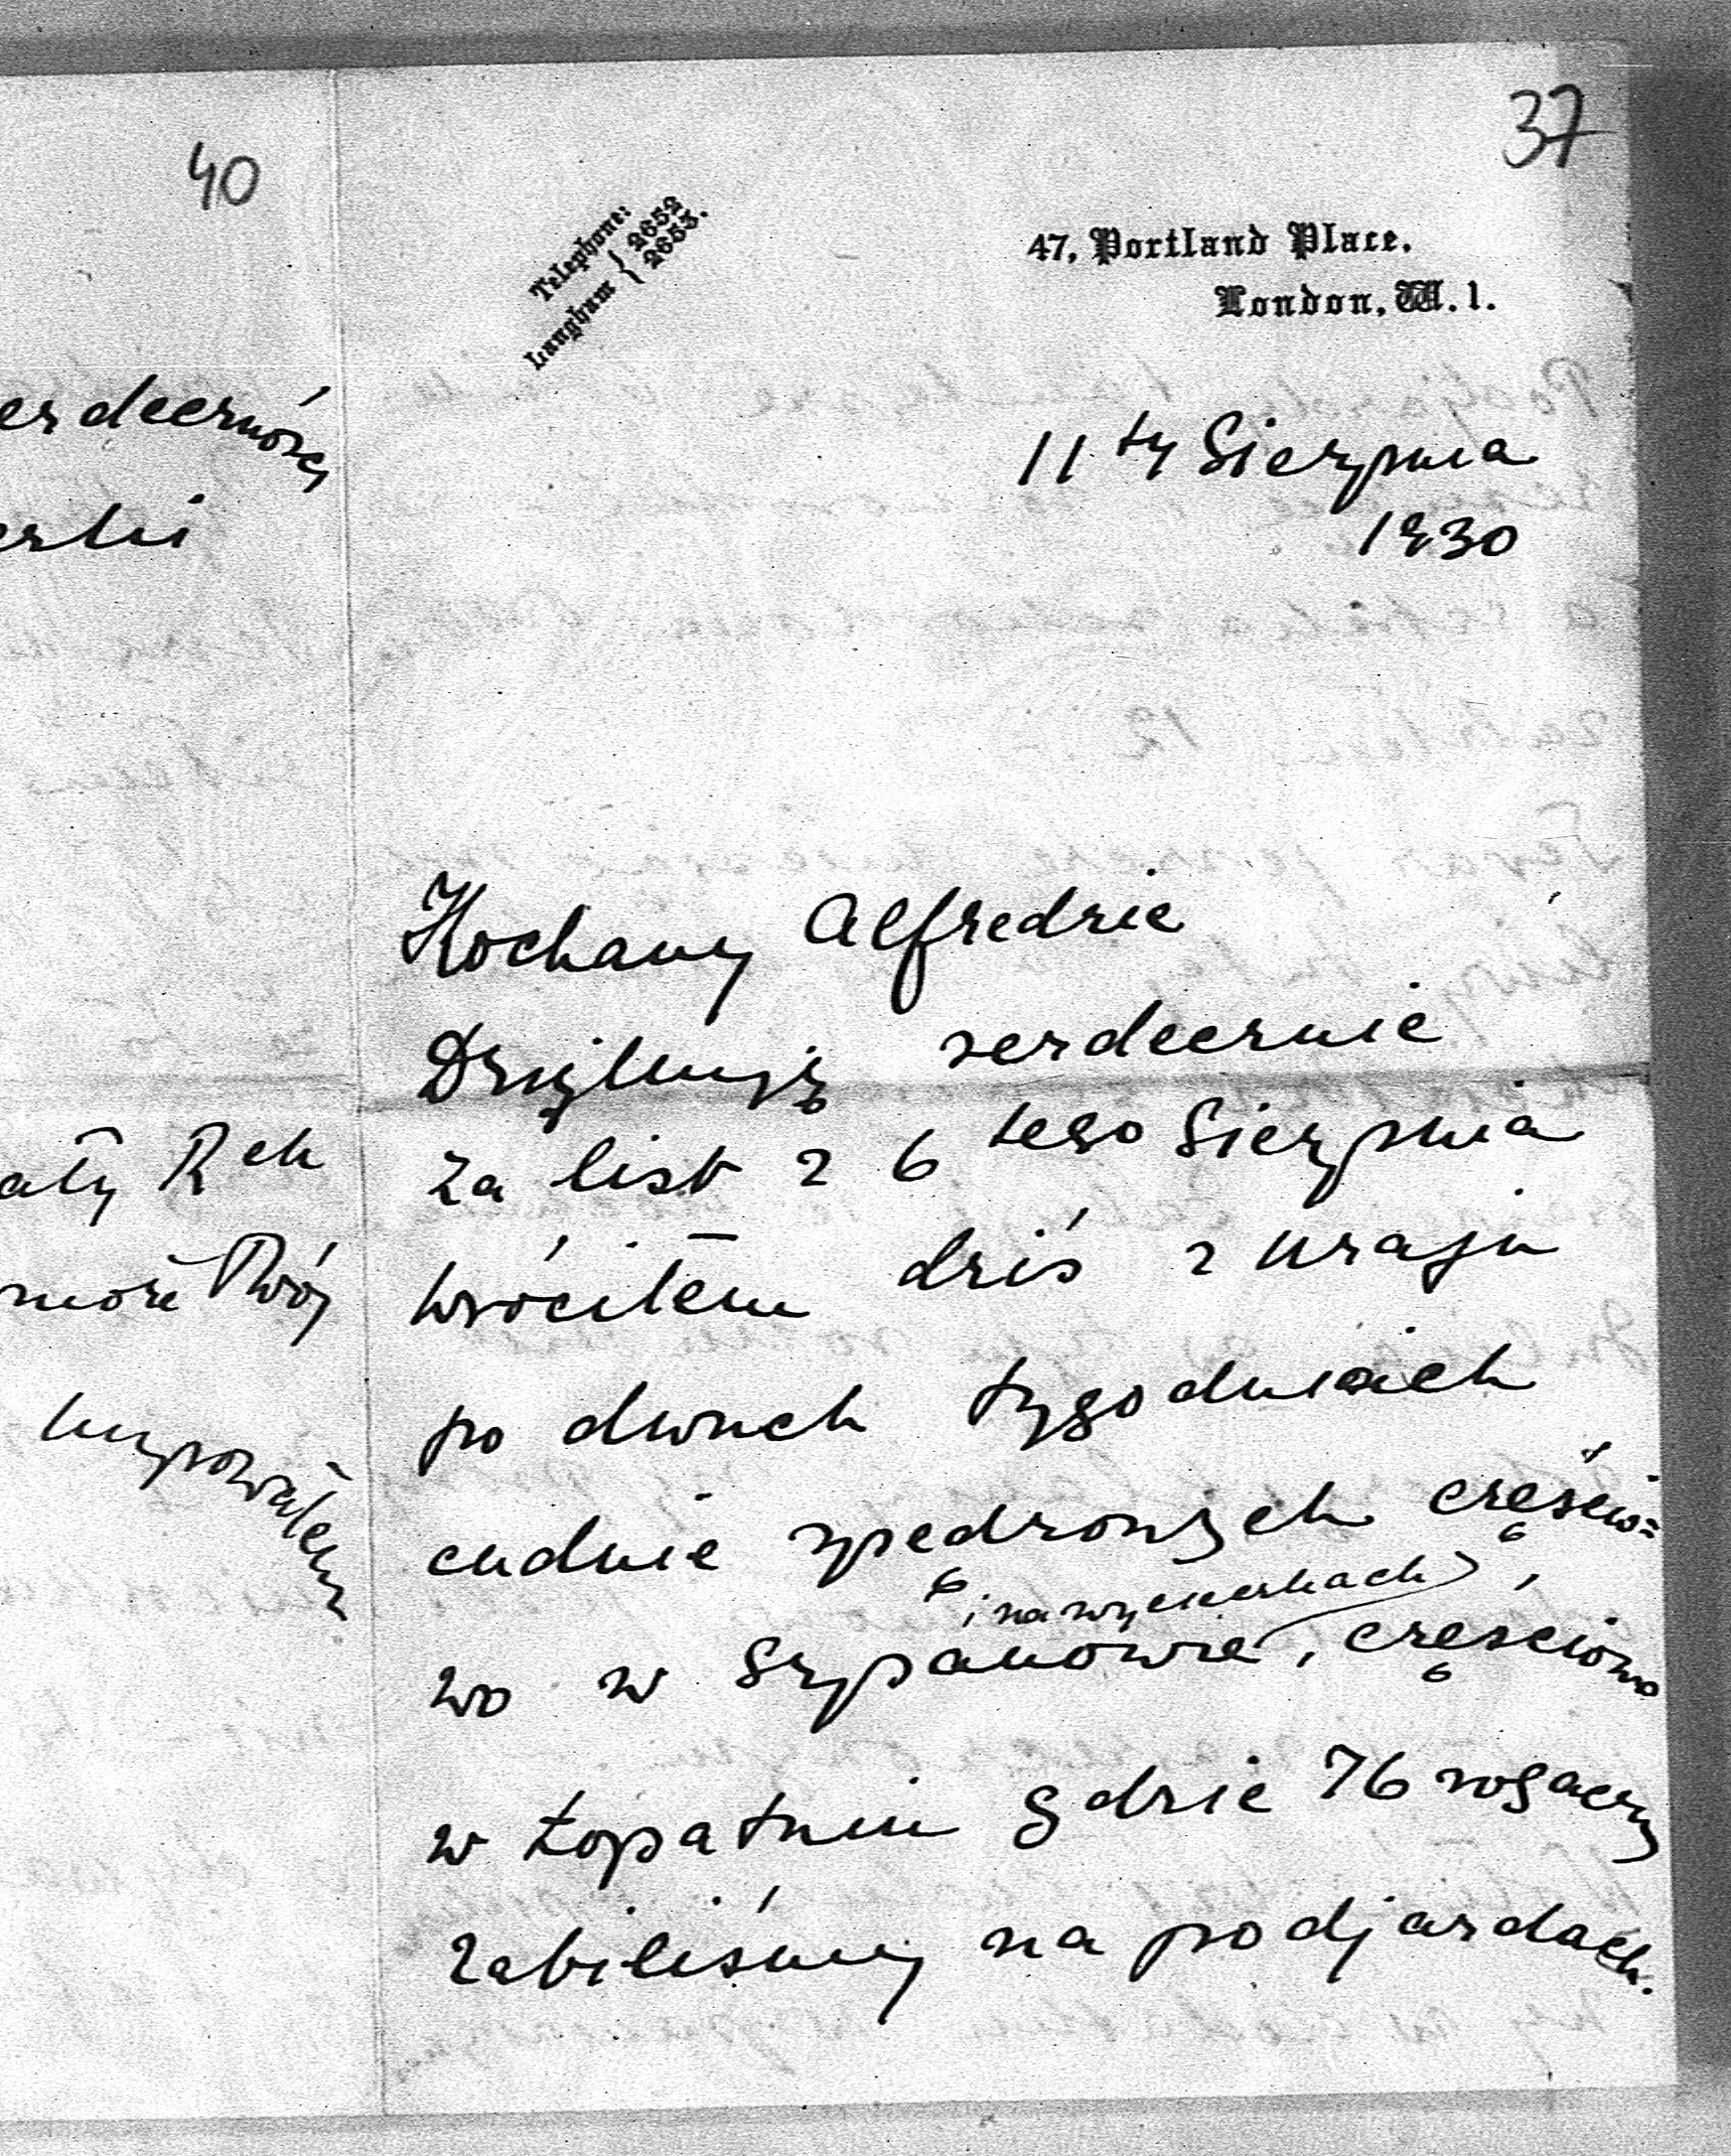 40
37
Telephone:
Langham { 2652
2653.
47, Portland Place.
London, W. 1.
11ty Sierpnia
1930
Kochany Alfredzie
Dziękuję serdecznie
za list z 6tego Sierpnia
wróciłem dziś z kraju
po dwuch tygodniach
cudnie spędzonych częścio=
wo w Szpanowie i na wycieczkach, częściowo
w Łopatniu gdzie 76 rogaczy
zabiliśmy na podjazdach.
erdeczności
erki
ały Rch
może Twój
kupowałem